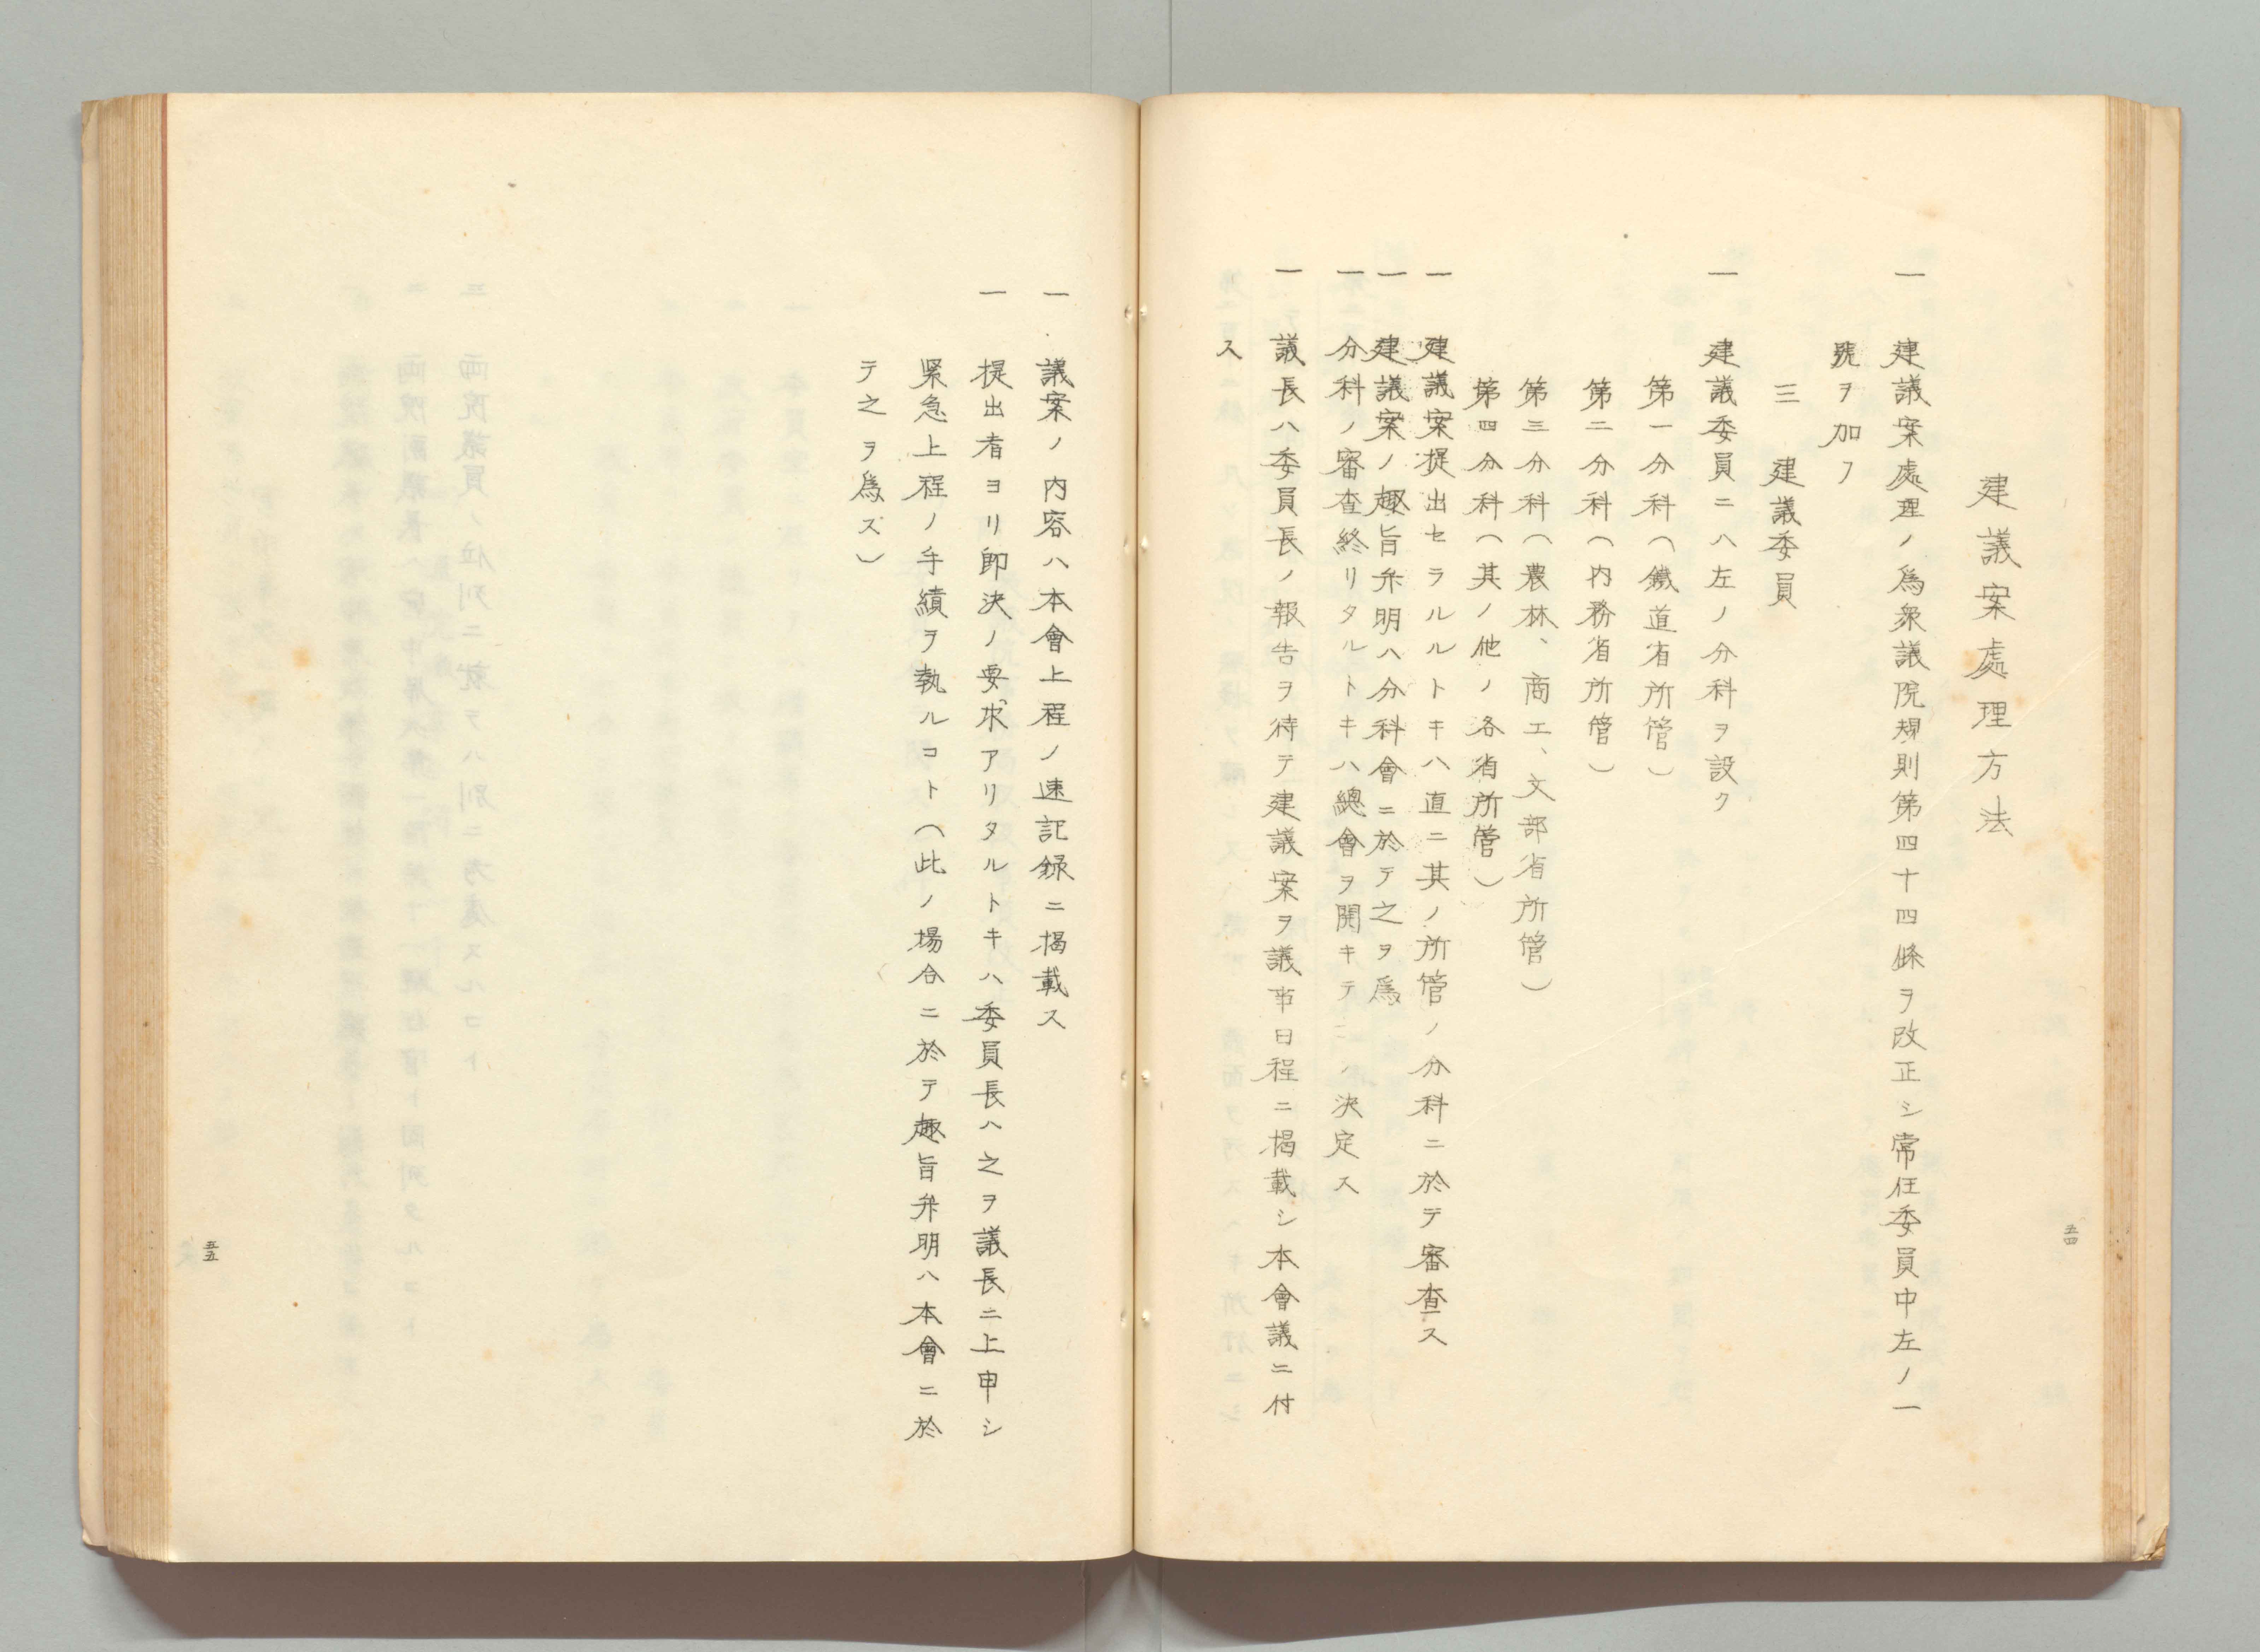 建議案處理方法
一 建議案處理ノ爲衆議院規則第四十四條ヲ改正シ常任委員中左ノ一
號ヲ加フ
三 建議委員
一 建議委員ニハ左ノ分科ヲ設ク
第一分科（鐵道省所管）
第二分科（内務省所管）
第三分科（農林、商工、文部省所管）
第四分科（其ノ他ノ各省所管）
一 建議案提出セラルルトキハ直ニ其ノ所管ノ分科ニ於テ審査ス
一 建議案ノ趣旨弁明ハ分科會ニ於テ之ヲ爲
一 分科ノ審査終リタルトキハ總會ヲ開キテ ノ決定ス
一 議長ハ委員長ノ報告ヲ待テ建議案ヲ議事日程ニ揭載シ本會議ニ付
ス
五四
一 議案ノ内容ハ本會上程ノ速記録ニ揭載ス
一 提出者ヨリ即決ノ要求アリタルトキハ委員長ハ之ヲ議長ニ上申シ
緊急上程ノ手續ヲ執ルコト（此ノ場合ニ於テ趣旨弁明ハ本會ニ於
テ之ヲ爲ズ）
五五